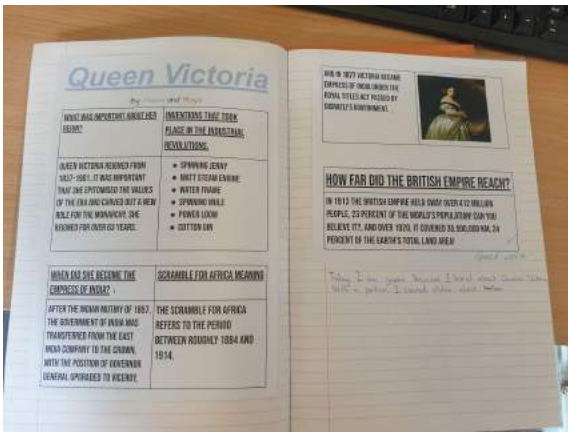 Queen Victoria
By and Maya
WHAT WAS IMPORTANT ABOUT HER
REIGN?
INVENTIONS THAT TOOK
PLACE IN THE INDUSTRIAL
REVOLUTIONS.
QUEEN VICTORIA REIGNED FROM
1837-1901. IT WAS IMPORTANT
THAT SHE EPITOMISED THE VALUES
OF THE ERA AND CARVED OUT A NEW
ROLE FOR THE MONARCHY. SHE
REIGNED FOR OVER 63 YEARS.
• SPINNING JENNY
• WATT STEAM ENGINE
• WATER FRAME
• SPINNING MULE
• POWER LOOM
• COTTON GIN
WHEN DID SHE BECOME THE
EMPRESS OF INDIA?
SCRAMBLE FOR AFRICA MEANING
AFTER THE INDIAN MUTINY OF 1857,
THE GOVERNMENT OF INDIA WAS
TRANSFERRED FROM THE EAST
INDIA COMPANY TO THE CROWN,
WITH THE POSITION OF GOVERNOR
GENERAL UPGRADED TO VICEROY,
THE SCRAMBLE FOR AFRICA
REFERS TO THE PERIOD
BETWEEN ROUGHLY 1884 AND
1914.
AND IN 1877 VICTORIA BECAME
EMPRESS OF INDIA UNDER THE
ROYAL TITLES ACT PASSED BY
DISRAELI'S GOVERNMENT.
HOW FAR DID THE BRITISH EMPIRE REACH?
IN 1913 THE BRITISH EMPIRE HELD SWAY OVER 412 MILLION
PEOPLE, 23 PERCENT OF THE WORLD'S POPULATION! CAN YOU
BELIEVE IT?, AND OVER 1920, IT COVERED 35,500,000 KM, 24
PERCENT OF THE EARTH'S TOTAL LAND AREA!
Good work
Today I am green because I learnt about Queen
With a partner I created slides about